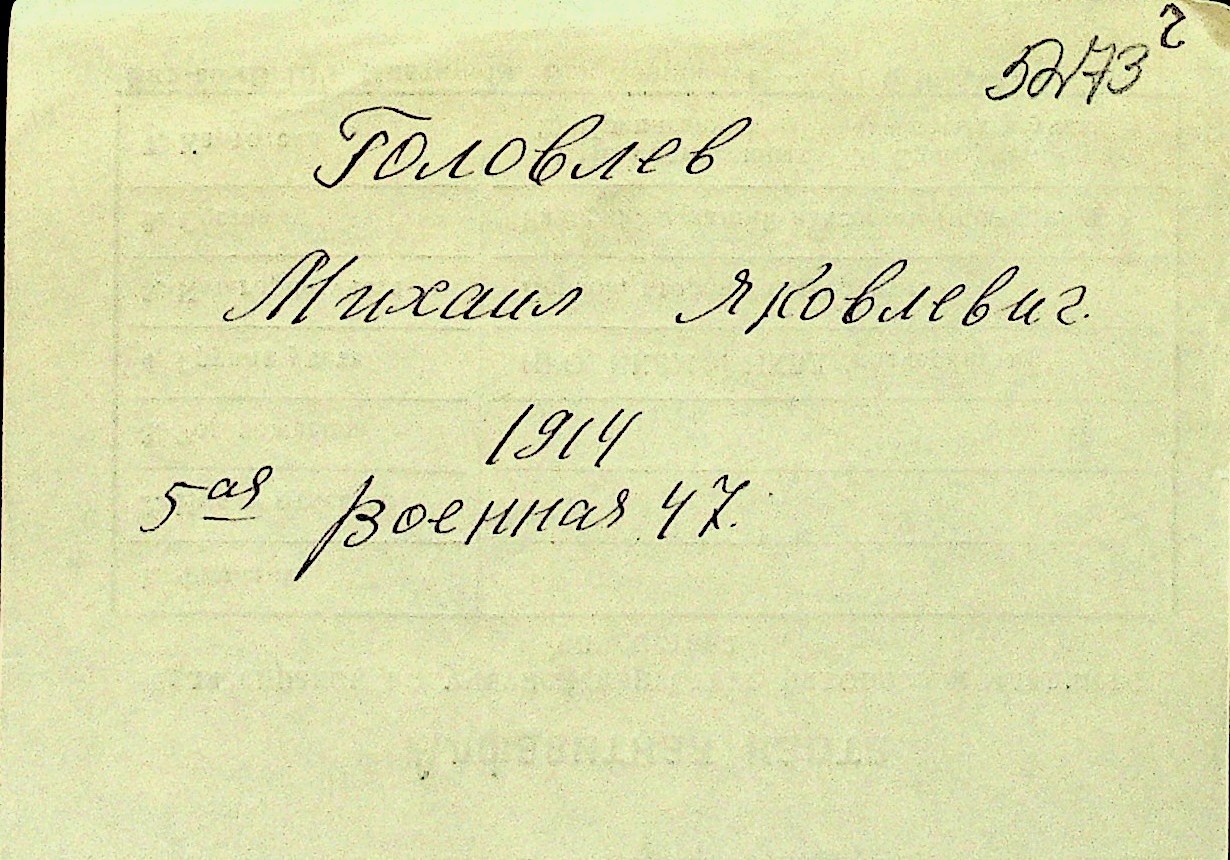 5273 г
Головлев
Михаил Яковлевич.
1914
5ая Военная 47.